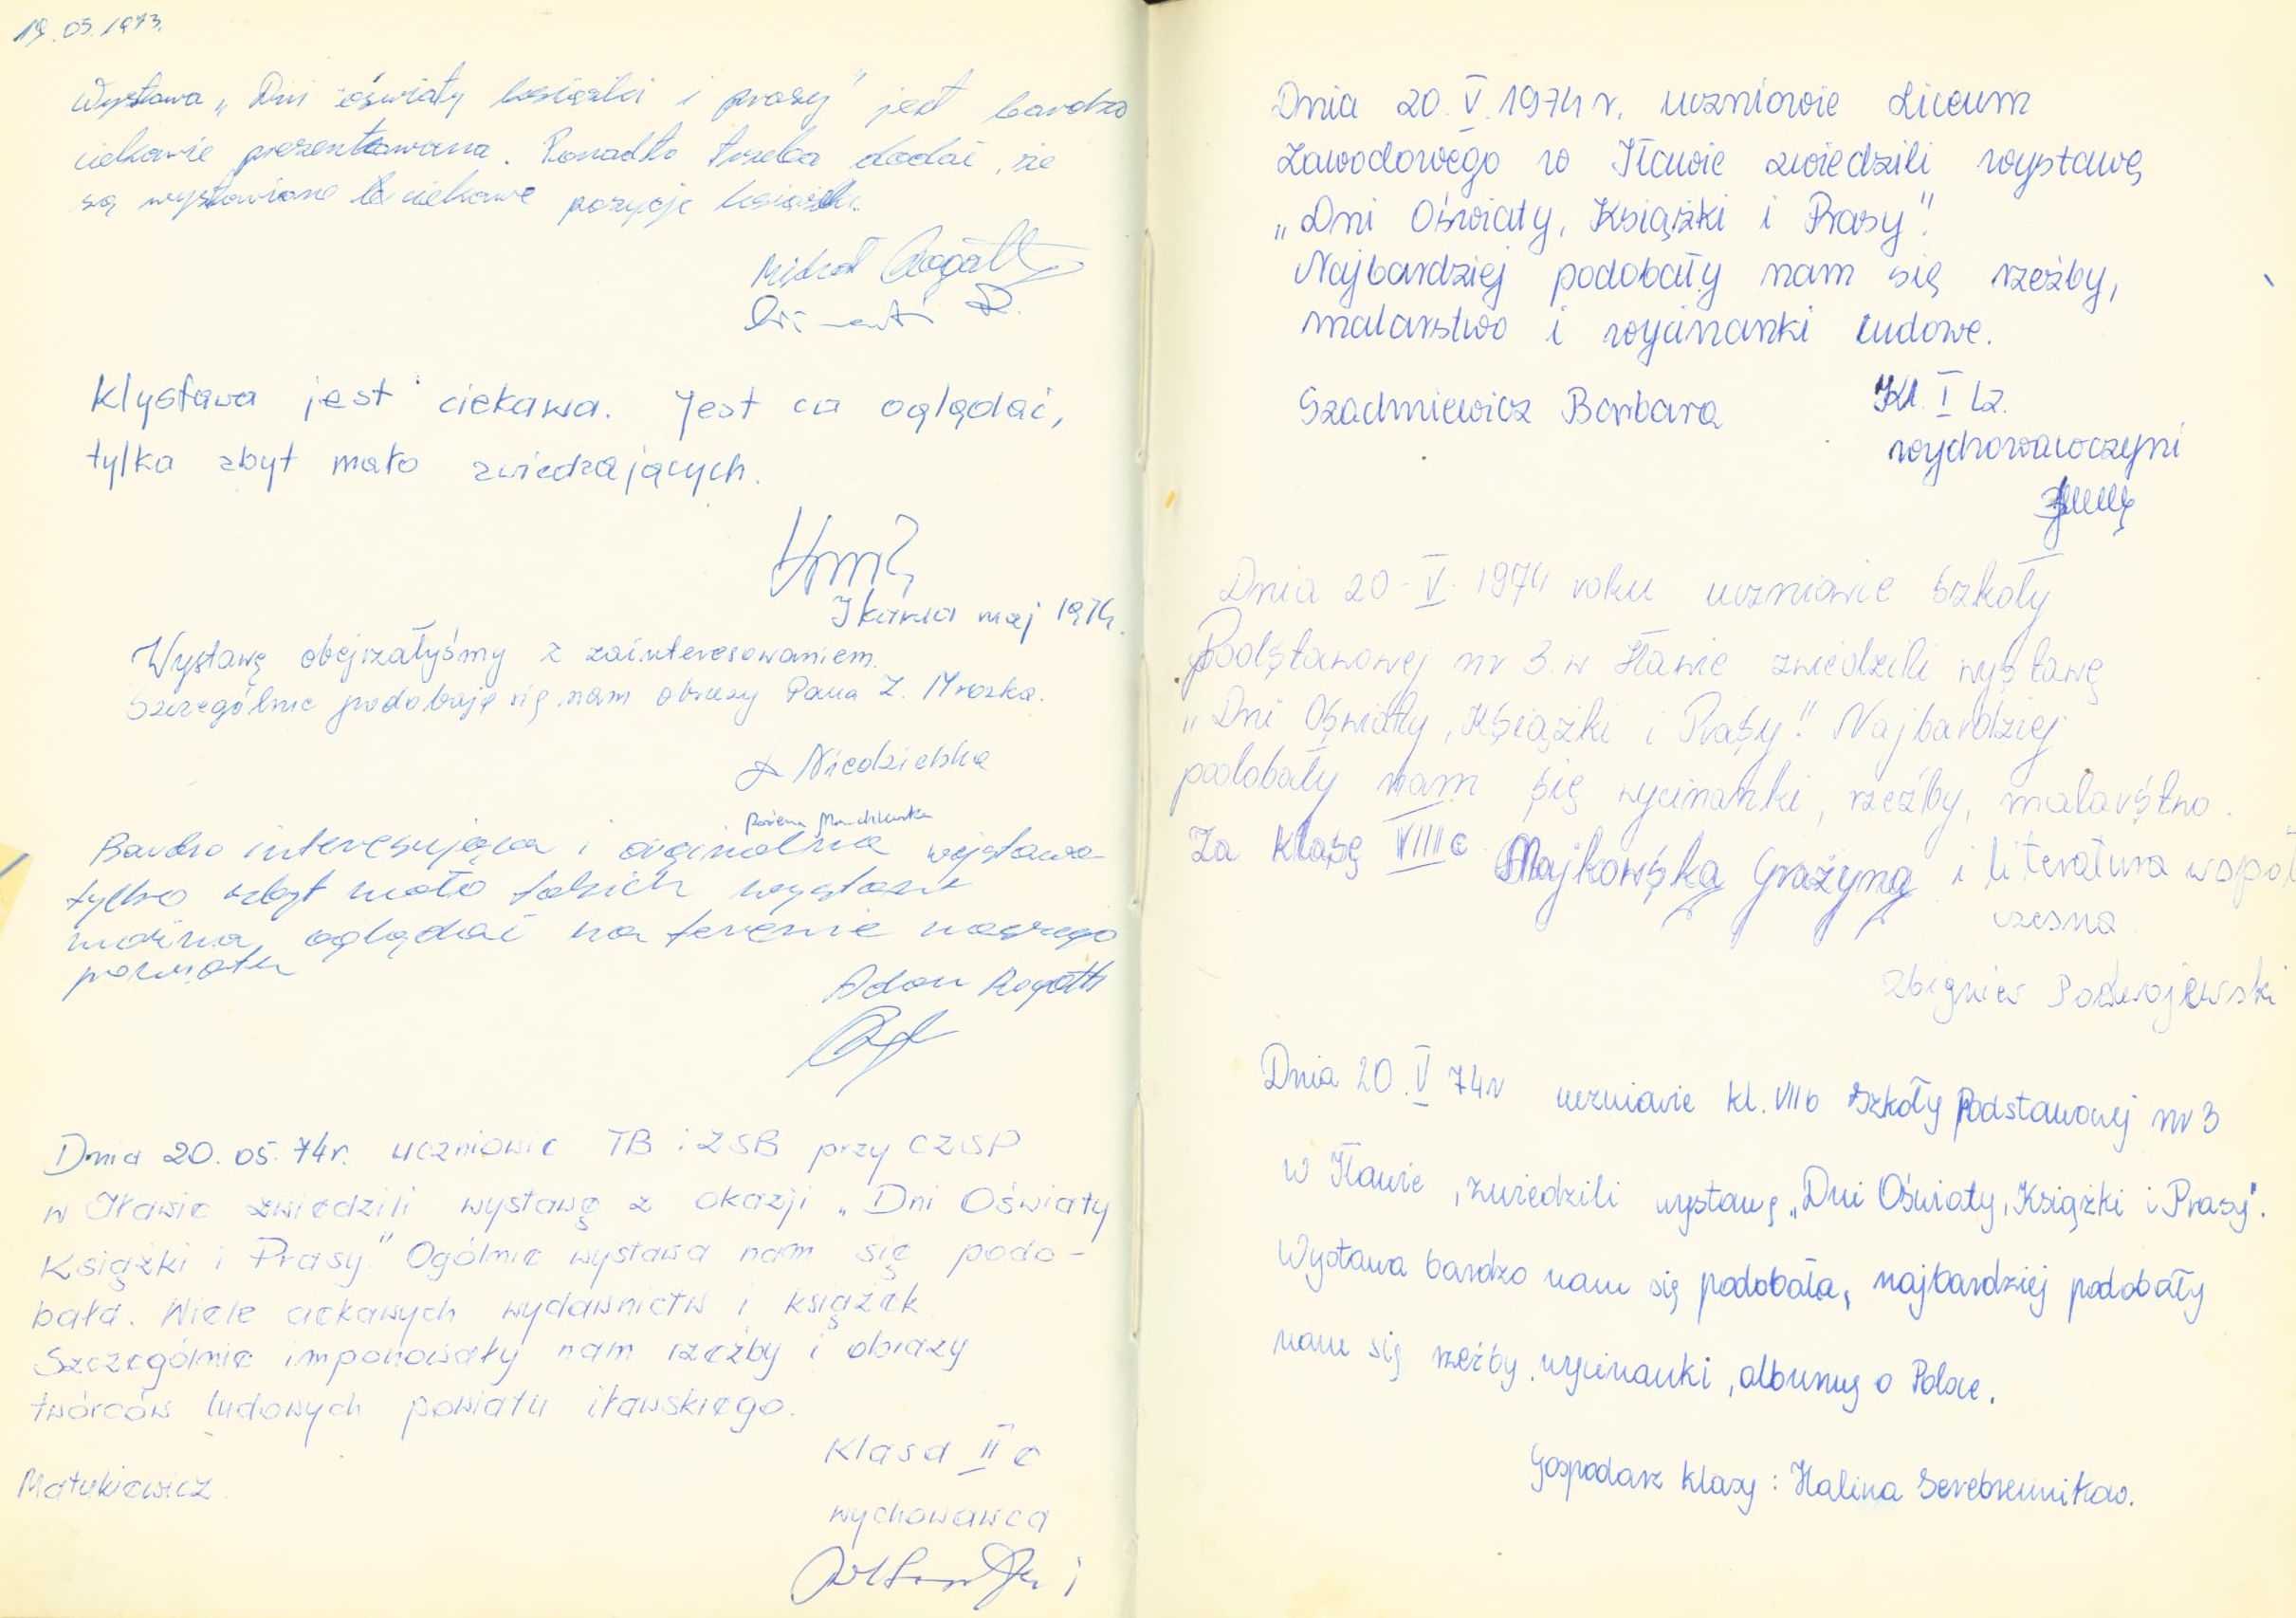 19.05.1973.
Wystawa „Dni oświaty książki i prasy" jest bardzo
ciekawie prezentowana. Ponadto trzeba dodać, że
są wystawione ciekawe pozycje książek.
Michał Rogatty
Wystawa jest ciekawa. Jest co oglądać,
tylko zbyt mało zwiedzających.
Iława maj 1974.
Wystawę obejrzałyśmy z zainteresowaniem.
Szczególnie podobają się nam obrazy Pana Z. Mrozka.
Niedzielska
Bożena
Bardzo interesująca i oryginalna wystawa
tylko zbyt mało takich wystaw
można oglądać na terenie naszego
powiatu
Adam Rogatty
Dnia 20.05.74r. uczniowie TB i ZSB przy CZSP
w Iławie zwiedzili wystawę z okazji „Dni Oświaty
Książki i Prasy" Ogólnie wystawa nam się podo-
bała. Wiele ciekawych wydawnictw i książek
Szczególnie imponowały nam rzeźby i obrazy
twórców ludowych powiatu iławskiego.
Klasa II c
Matukiewicz.
wychowawca
Dnia 20.V.1974r. uczniowie Liceum
Zawodowego w Iławie zwiedzili wystawę
„Dni Oświaty, Książki i Prasy".
Najbardziej podobały nam się rzeźby,
malarstwo i wycinanki ludowe.
Szachniewicz Barbara Kl. I Lz.
wychowawczyni
Dnia 20-V-1974 roku uczniowie Szkoły
Podstawowej nr 3. w Iławie zwiedzili wystawę
„Dni Oświaty, Książki i Prasy". Najbardziej
podobały nam się wycinanki, rzeźby, malarstwo.
Za klasę VIIIc Majkowska Grażyna i literatura współ
czesna
Zbigniew Podwojewski
Dnia 20.V 74r uczniowie kl. VIIb Szkoły Podstawowej nr 3
w Iławie, zwiedzili wystawę „Dni Oświaty, Książki i Prasy".
Wystawa bardzo nam się podobała, najbardziej podobały
nam się rzeźby, wycinanki, albumy o Polsce.
Gospodarz klasy: Halina Serebrennikow.